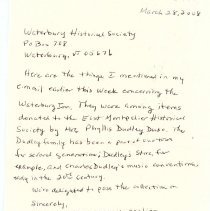 March 28, 2008
Waterbury Historical Society
PO Box 708
Waterbury, VT 05676
Here are the things I mentioned in my
email earlier this week concerning the
Waterbury Inn. They were among items
donated to the East Montpelier Historical
Society by Mrs. Phyllis Dudley Dube. The
Dudley family has been a part of our town
for several generations, Dudley's Store, for
example, and Dudley's music conventions
early in the 20th century.
We're delighted to pass the collection on
Sincerely,